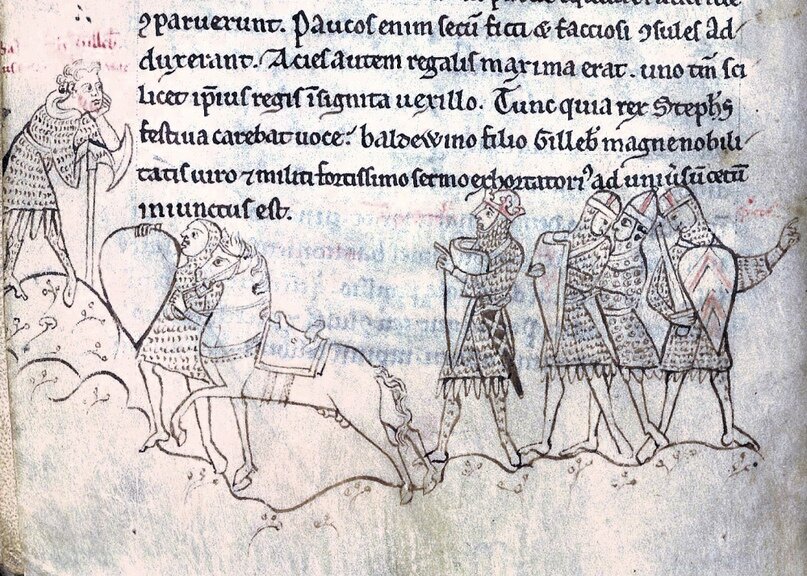 ꝯparuerunt. Paucos enim secū ficti & facciosi ꝯsules ad-
duxerant. Acies autem regalis maxima erat. uno tm̄ sci
licet ip̄ius regis īsignita uexillo. Tunc quia rex Stephs
festiua carebat uoce: baldewino filio Gilleb̄ magne nobili
tatis uiro ⁊ militi fortissimo sermo exhortatori᷒ ad uniūsū cetū
iniunctus est.